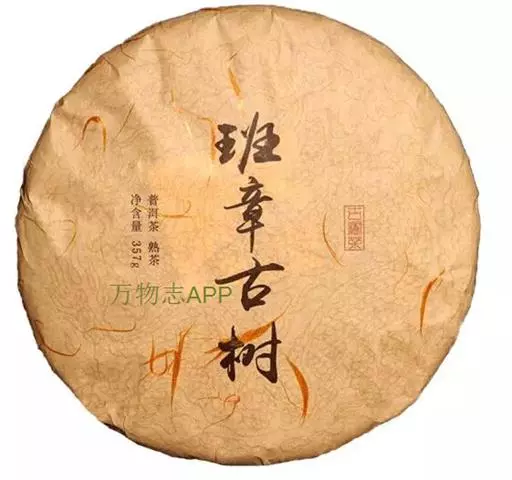 班章古树
普洱茶 熟茶
净含量 357g
古树茶
万物志APP